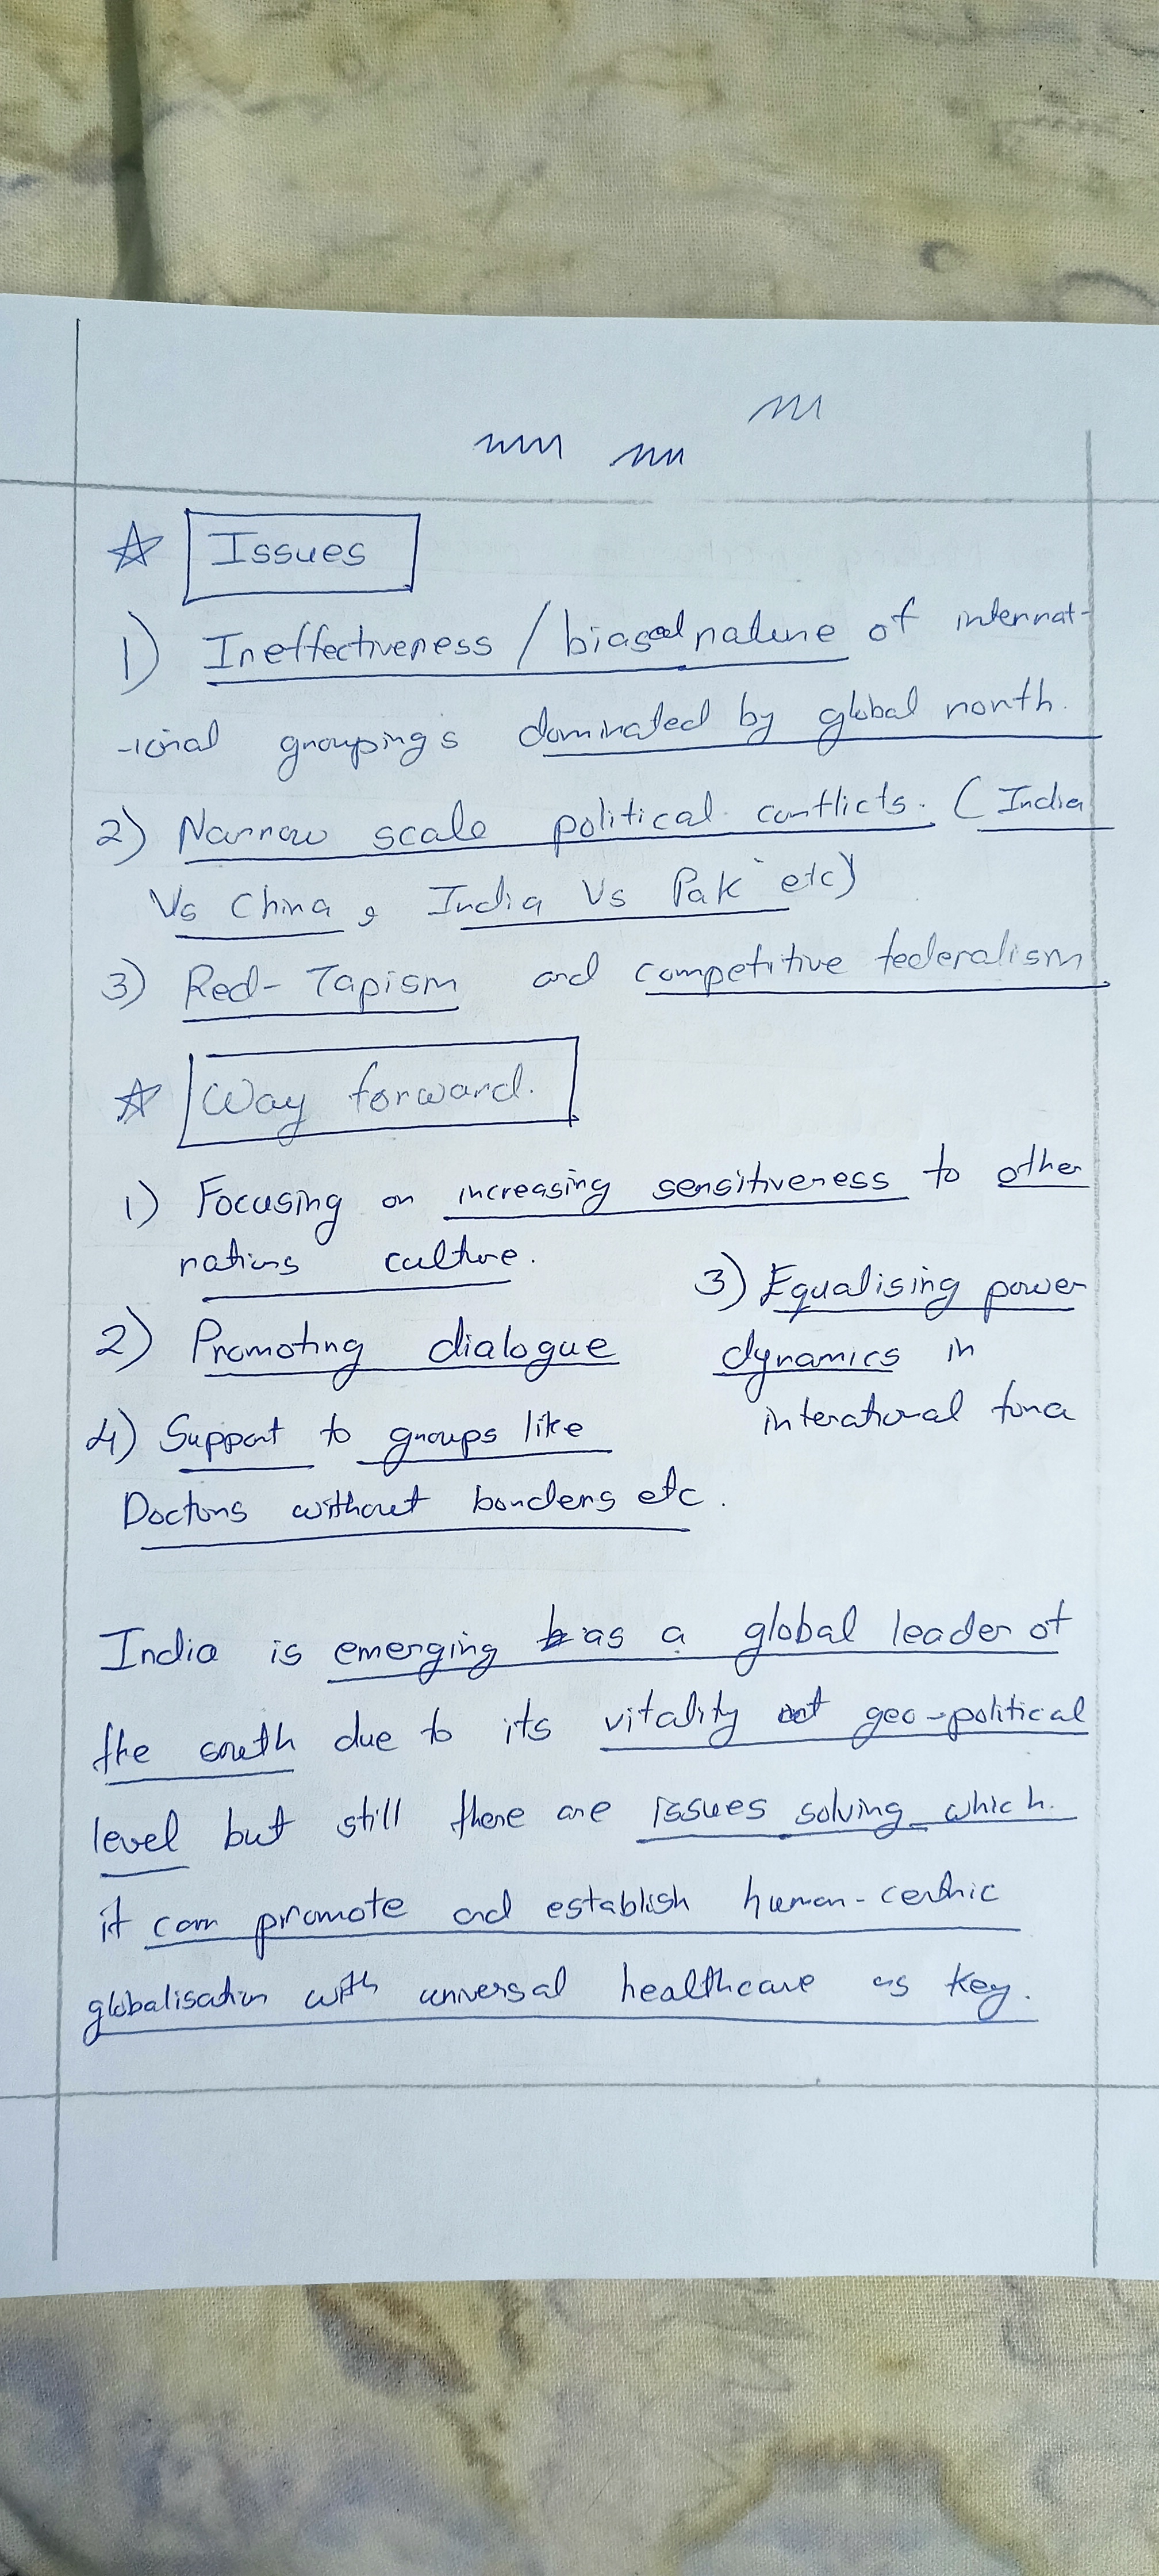 ☆ Issues
1) Ineffectiveness / biased nature of internat-
-ional groupings dominated by global north.
2) Narrow scale political conflicts. (India
Vs China, India Vs Pak etc)
3) Red-Tapism and competitive federalism
☆ Way forward.
1) Focusing on increasing sensitiveness to other
nations culture.
2) Promoting dialogue
3) Equalising power
dynamics in
interational fora
4) Support to groups like
Doctors without borders etc.
India is emerging as a global leader of
the south due to its vitality at geo-political
level but still there are issues solving which
it can promote and establish human-centric
globalisation with universal healthcare as key.